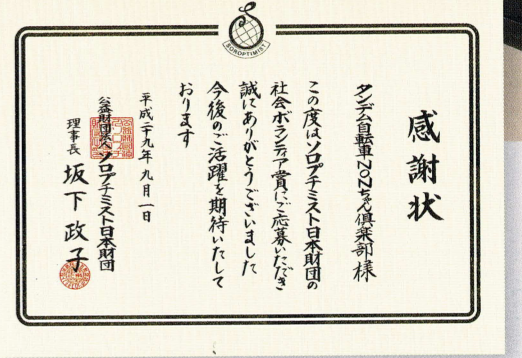 SOROPTIMIST
感謝状
タンデム自転車NONちゃん倶楽部 様
この度はソロプチミスト日本財団の
社会ボランティア賞にご応募いただき
誠にありがとうございました
今後のご活躍を期待いたして
おります
平成二十九年 九月一日
公益財団法人 ソロプチミスト日本財団
理事長 坂下政子